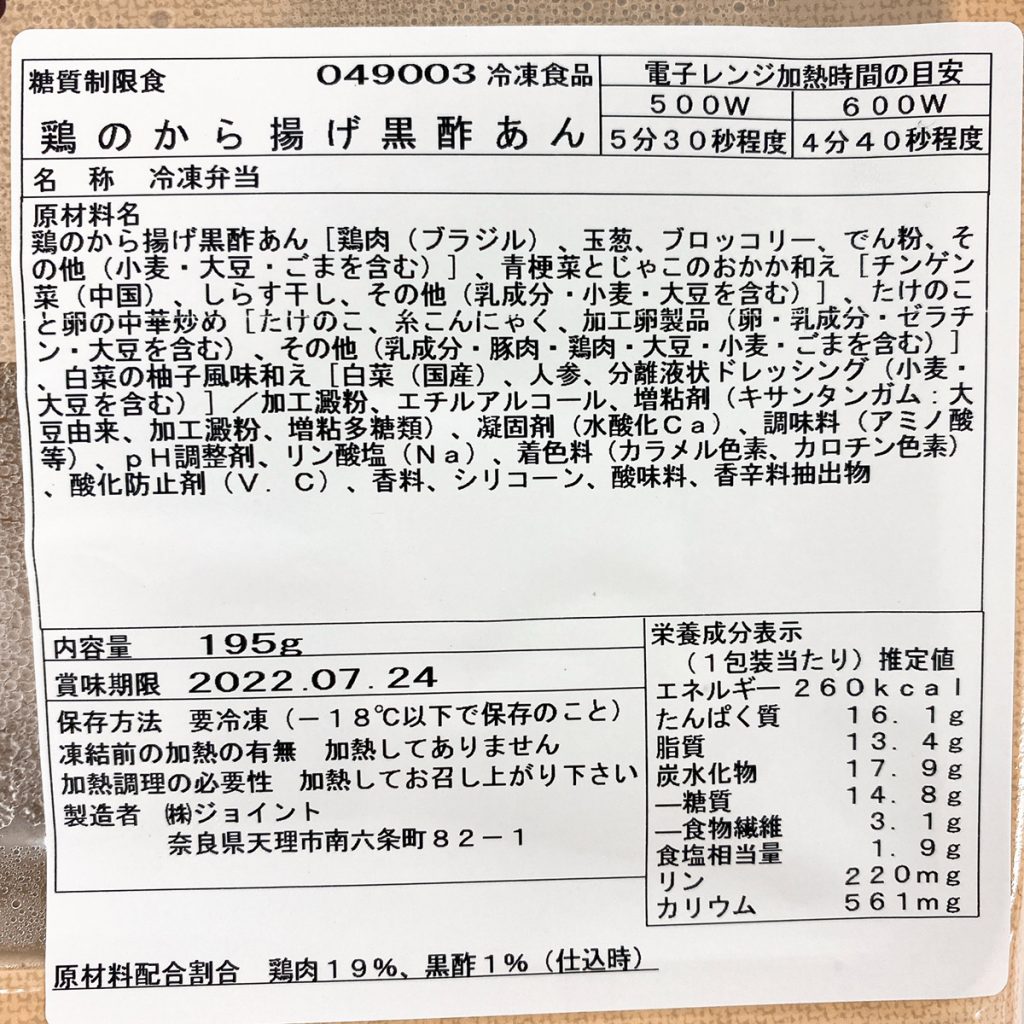 糖質制限食 049003 冷凍食品
鶏のから揚げ黒酢あん
電子レンジ加熱時間の目安
500W 600W
5分30秒程度 4分40秒程度
名 称 冷凍弁当
原材料名
鶏のから揚げ黒酢あん［鶏肉（ブラジル）、玉葱、ブロッコリー、でん粉、そ
の他（小麦・大豆・ごまを含む）］、青梗菜とじゃこのおかか和え［チンゲン
菜（中国）、しらす干し、その他（乳成分・小麦・大豆を含む）］、たけのこ
と卵の中華炒め［たけのこ、糸こんにゃく、加工卵製品（卵・乳成分・ゼラチ
ン・大豆を含む）、その他（乳成分・豚肉・鶏肉・大豆・小麦・ごまを含む）］
、白菜の柚子風味和え［白菜（国産）、人参、分離液状ドレッシング（小麦・
大豆を含む）］／加工澱粉、エチルアルコール、増粘剤（キサンタンガム：大
豆由来、加工澱粉、増粘多糖類）、凝固剤（水酸化Ｃａ）、調味料（アミノ酸
等）、ｐＨ調整剤、リン酸塩（Ｎａ）、着色料（カラメル色素、カロチン色素）
、酸化防止剤（Ｖ．Ｃ）、香料、シリコーン、酸味料、香辛料抽出物
内容量 195g
賞味期限 2022.07.24
保存方法 要冷凍（－18℃以下で保存のこと）
凍結前の加熱の有無 加熱してありません
加熱調理の必要性 加熱してお召し上がり下さい
製造者 ㈱ジョイント
奈良県天理市南六条町８２－１
栄養成分表示
（１包装当たり）推定値
エネルギー ２６０ｋｃａｌ
たんぱく質 １６．１ｇ
脂質 １３．４ｇ
炭水化物 １７．９ｇ
―糖質 １４．８ｇ
―食物繊維 ３．１ｇ
食塩相当量 １．９ｇ
リン ２２０ｍｇ
カリウム ５６１ｍｇ
原材料配合割合 鶏肉１９％、黒酢１％（仕込時）